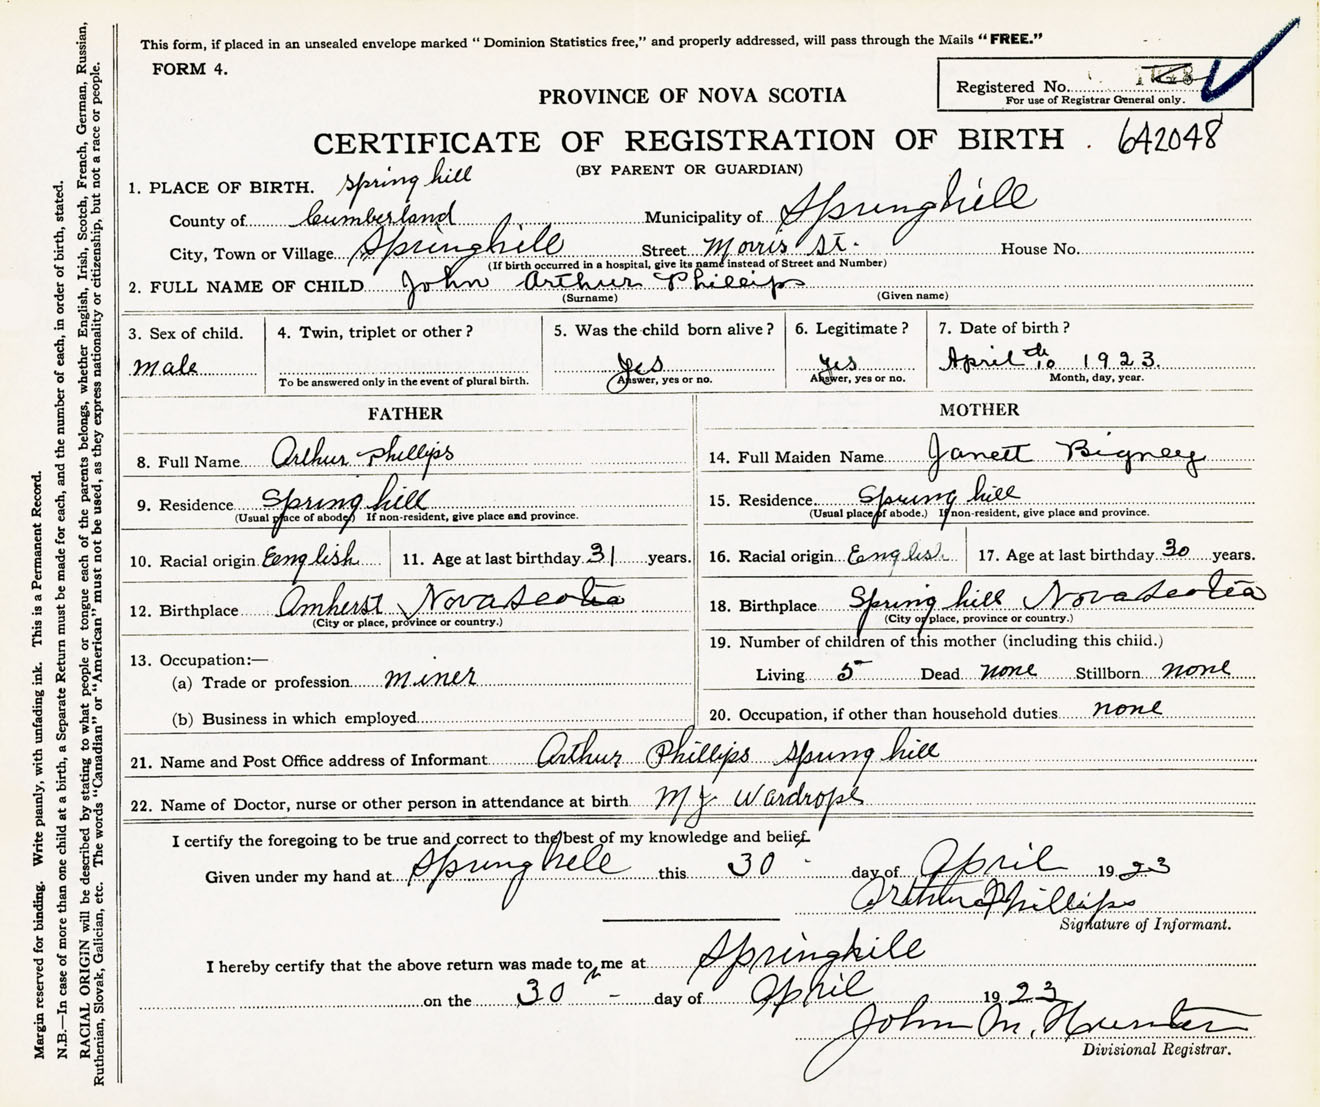 This form, if placed in an unsealed envelope marked " Dominion Statistics free," and properly addressed, will pass through the Mails "FREE."
FORM 4.
Registered No.
For use of Registrar General only.
PROVINCE OF NOVA SCOTIA
CERTIFICATE OF REGISTRATION OF BIRTH . 642048
(BY PARENT OR GUARDIAN)
1. PLACE OF BIRTH. Spring hill
County of Cumberland Municipality of Springhill
City, Town or Village Springhill Street Morris St. House No.
(If birth occurred in a hospital, give its name instead of Street and Number)
2. FULL NAME OF CHILD John Arthur Phillips
(Surname) (Given name)
3. Sex of child. 4. Twin, triplet or other? 5. Was the child born alive? 6. Legitimate? 7. Date of birth?
male Yes Yes April 10th 1923.
To be answered only in the event of plural birth. Answer, yes or no. Answer, yes or no. Month, day, year.
FATHER MOTHER
8. Full Name Arthur Phillips 14. Full Maiden Name Janett Bigney
9. Residence Spring hill 15. Residence Spring hill
(Usual place of abode) If non-resident, give place and province. (Usual place of abode.) If non-resident, give place and province.
10. Racial origin Eenglish 11. Age at last birthday 31 years. 16. Racial origin Eenglish 17. Age at last birthday 30 years.
12. Birthplace Amherst Nova Scotia 18. Birthplace Spring hill Nova Scotia
(City or place, province or country.) (City or place, province or country.)
13. Occupation:— 19. Number of children of this mother (including this child.)
(a) Trade or profession miner Living 5 Dead none Stillborn none
(b) Business in which employed 20. Occupation, if other than household duties none
21. Name and Post Office address of Informant Arthur Phillips Spring hill
22. Name of Doctor, nurse or other person in attendance at birth M J Wardrope
I certify the foregoing to be true and correct to the best of my knowledge and belief.
Given under my hand at Springhill this 30 day of April 1923
Arthur Phillips
Signature of Informant.
I hereby certify that the above return was made to me at Springhill
on the 30th - day of April 1923
John M. Hunter
Divisional Registrar.
Margin reserved for binding. Write plainly, with unfading ink. This is a Permanent Record.
N.B.—In case of more than one child at a birth, a Separate Return must be made for each, and the number of each, in order of birth, stated.
RACIAL ORIGIN will be described by stating to what people or tongue each of the parents belongs, whether English, Irish, Scotch, French, German, Russian,
Ruthenian, Slovak, Galician, etc. The words "Canadian" or "American" must not be used, as they express nationality or citizenship, but not a race or people.